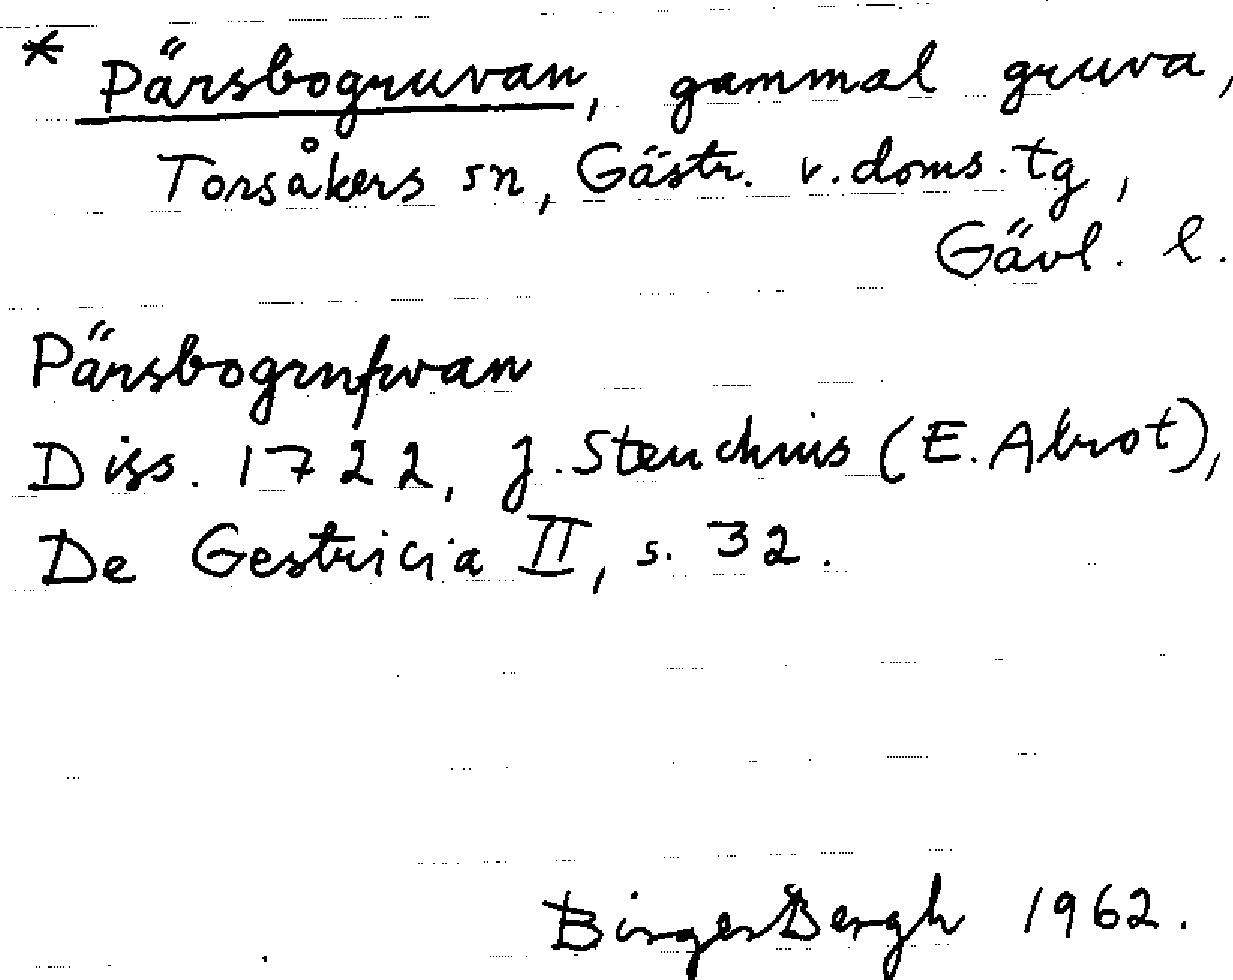 * Pärsbogruvan, gammal gruva,
Torsåkers sn, Gästr. v. doms. tg,
Gävl. l.
Pärsbogrufwan
Diss. 1722, J. Steuchius (E. Abrot),
De Gestricia II, s. 32.
Birger Bergh 1962.